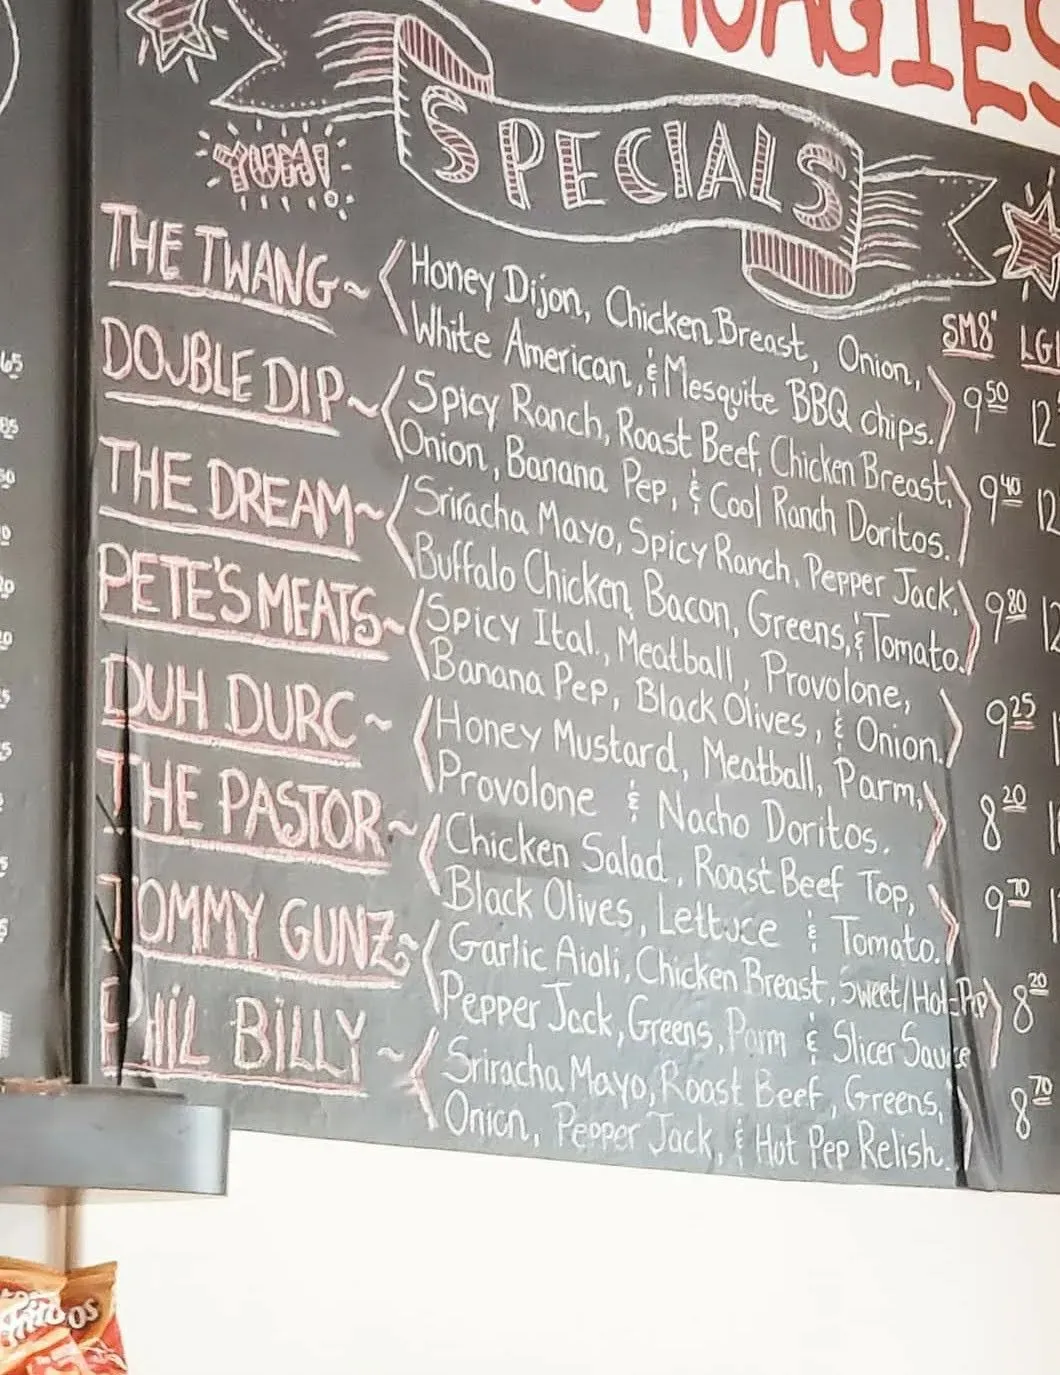 HOAGIES
SPECIALS
YUM!
SM8"
THE TWANG ~ Honey Dijon, Chicken Breast, Onion,
White American, & Mesquite BBQ chips. 9.50 12
DOUBLE DIP ~ Spicy Ranch, Roast Beef, Chicken Breast,
Onion, Banana Pep, & Cool Ranch Doritos. 9.40 12
THE DREAM ~ Sriracha Mayo, Spicy Ranch, Pepper Jack,
Buffalo Chicken, Bacon, Greens, & Tomato. 9.80 12
PETE'S MEATS ~ Spicy Ital., Meatball, Provolone,
Banana Pep, Black Olives, & Onion. 9.25
DUH DURC ~ Honey Mustard, Meatball, Parm,
Provolone & Nacho Doritos. 8.20
THE PASTOR ~ Chicken Salad, Roast Beef Top,
Black Olives, Lettuce & Tomato. 9.70
TOMMY GUNZ ~ Garlic Aioli, Chicken Breast, Sweet/Hot-Pep
Pepper Jack, Greens, Parm & Slicer Sauce 8.20
PHIL BILLY ~ Sriracha Mayo, Roast Beef, Greens,
Onion, Pepper Jack, & Hot Pep Relish. 8.70
Fritos